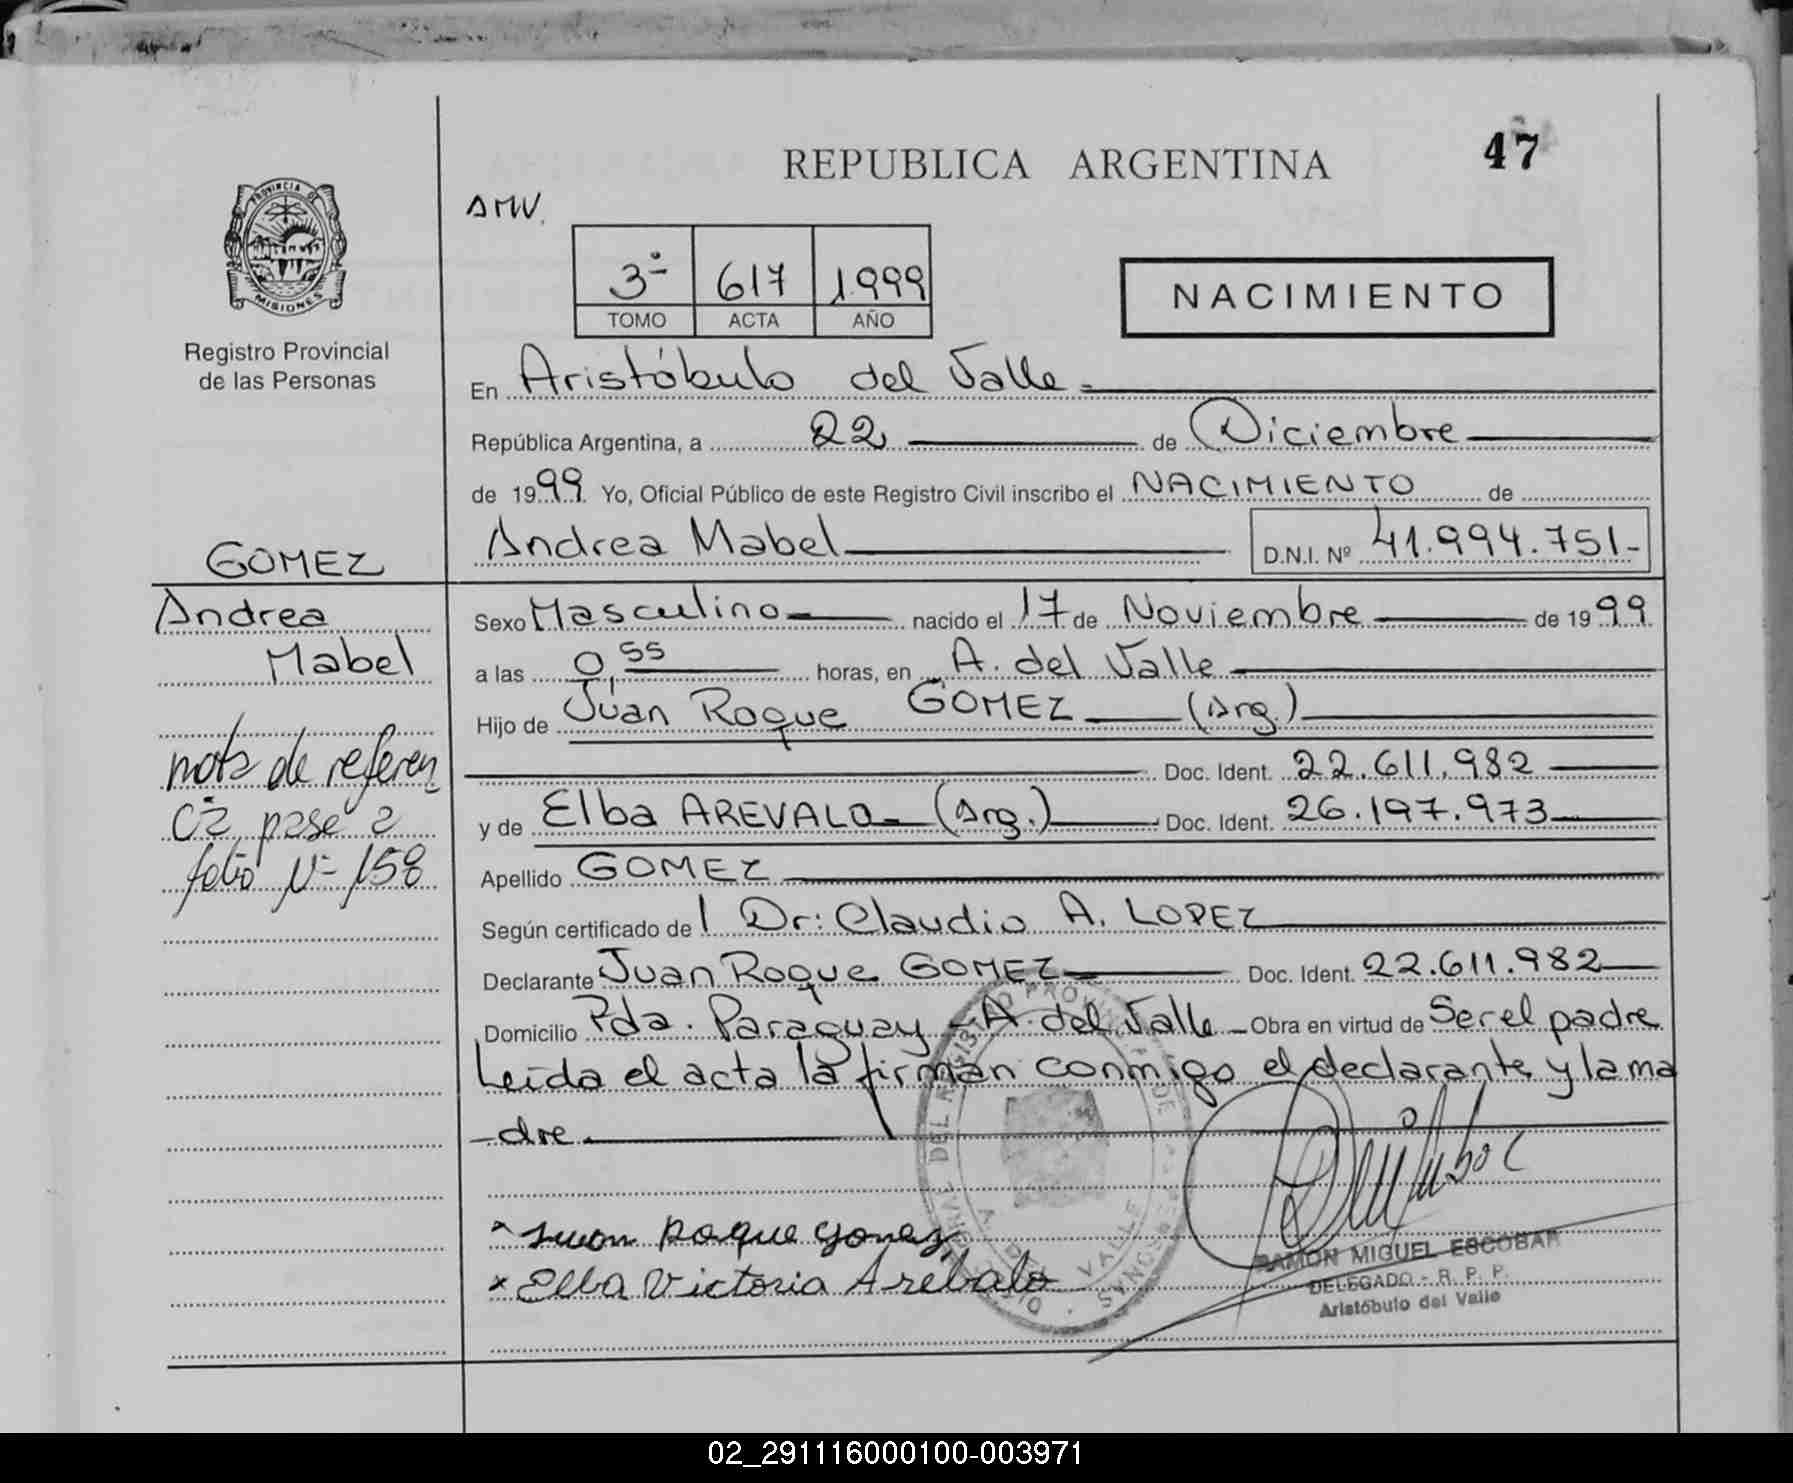 REPUBLICA ARGENTINA
47
AMV.
PROVINCIA DE
MISIONES
Registro Provincial
de las Personas
3º 617 1.999
TOMO ACTA AÑO
NACIMIENTO
En Aristóbulo del Valle.
República Argentina, a 22 de Diciembre
de 1999 Yo, Oficial Público de este Registro Civil inscribo el NACIMIENTO de
Andrea Mabel D.N.I. Nº 41.994.751-
GOMEZ
Andrea
Mabel
nota de referen
cia pase a
folio Nº 158
Sexo Masculino nacido el 17 de Noviembre de 1999
a las 0,55 horas, en A. del Valle
Hijo de Juan Roque GOMEZ (Arg.)
Doc. Ident. 22.611.982
y de Elba AREVALO (Arg.) Doc. Ident. 26.197.973
Apellido GOMEZ
Según certificado de l Dr: Claudio A. LOPEZ
Declarante Juan Roque GOMEZ Doc. Ident. 22.611.982
Domicilio Pda. Paraguay - A. del Valle - Obra en virtud de Ser el padre
Leída el acta la firman conmigo el declarante y la ma
-dre
x Juan Roque Gomez
x Elba Victoria Arebalo
RAMON MIGUEL ESCOBAR
DELEGADO - R. P. P.
Aristóbulo del Valle
02_291116000100-003971